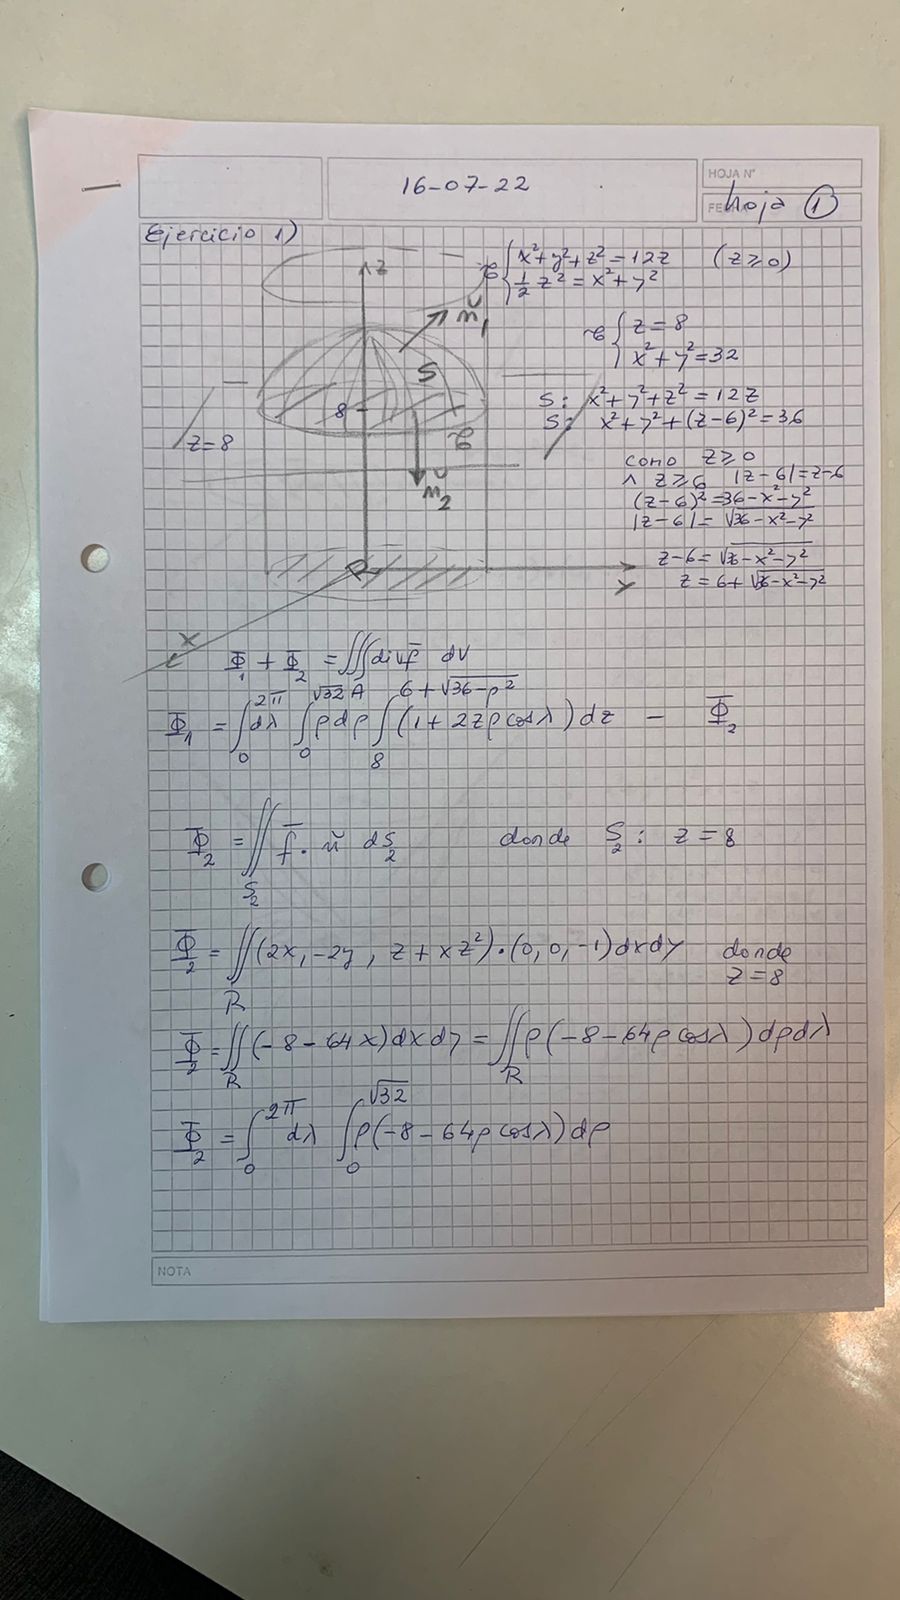 16-07-22
HOJA N°
hoja ①
Ejercicio 1)
z
x²+y²+z² = 12z (z≥0)
½ z² = x²+y²
n̆₁
z = 8
x²+y² = 32
S
8
z=8
S: x²+y²+z² = 12z
S: x²+y²+(z-6)² = 36
como z≥0
∧ z≥6 |z-6|=z-6
(z-6)² = 36-x²-y²
|z-6| = √36-x²-y²
n̆₂
z-6 = √36-x²-y²
z = 6+√36-x²-y²
R
y
x
Φ₁ + Φ₂ = ∭ div f̄ dv
Φ₁ = ∫₀^2π dλ ∫₀^√32 ρdρ ∫₈^6+√36-ρ² (1+2zρcosλ)dz - Φ₂
Φ₂ = ∬_S₂ f̄ · n̆ dS₂ donde S₂: z = 8
Φ₂ = ∬_R (2x, -2y, z+xz²)·(0,0,-1)dxdy donde
z=8
Φ₂ = ∬_R (-8-64x)dxdy = ∬_R ρ(-8-64ρcosλ)dρdλ
Φ₂ = ∫₀^2π dλ ∫₀^√32 ρ(-8-64ρcosλ)dρ
NOTA